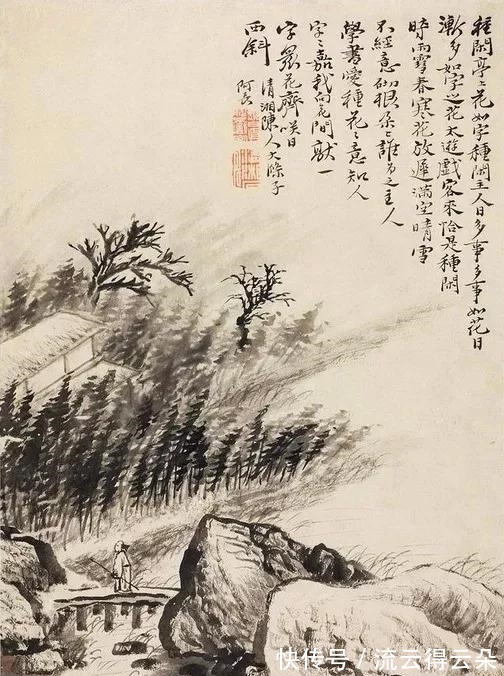 種閑亭上花如字種閑主人日多事多事如花日
漸多如字之花太遊戲客來恰是種閑
時雨雪春寒花放遲滿空晴雪
不經意砌根朵〻誰為之主人
學書愛種花〻意知人
字〻嘉我向花間獻一
字眾花齊咲日
西斜
清湘陳人大滌子
阿長
快传号 / 流云得云朵